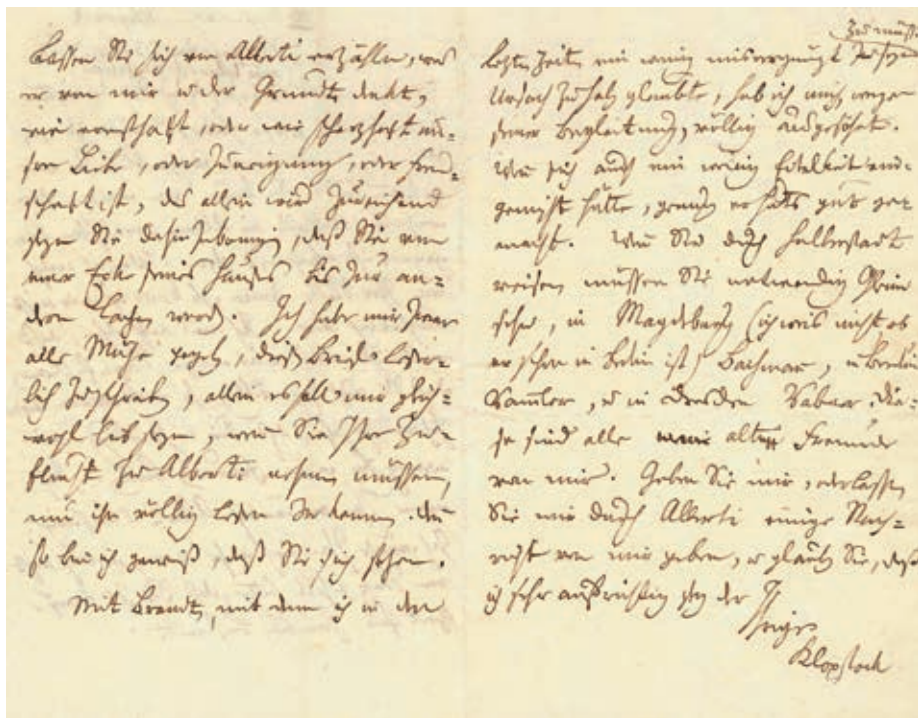 Lassen Sie sich von Alberti erzählen, was
er von mir u der Freundsch denkt,
wie ernsthaft, oder wie scherzhaft un-
sre Liebe, oder Zuneigung, oder Freund-
schaft ist, das allein wird zureichend
gegen Sie dahin zu bringen, daß Sie von
einer Ecke seines Hauses bis zur an-
dern lachen werden. Ich habe mir zwar
alle Mühe gegeben, diesen Brief leser-
lich zu schreiben, allein es soll mir gleich-
wohl lieb seyn, wenn Sie Ihre Zu-
flucht zu Alberti nehmen müssen,
um ihn völlig lesen zu können. denn
so bin ich gewiß, daß Sie sich sehen.
Mit Brandt, mit dem ich in der
letzten Zeit ein wenig misvergnügt zu seyn
zu müssen
Ursach zu haben glaubte, hab ich mich wegen
seiner Begleitung völlig ausgesöhnt.
Wenn sich auch ein wenig Eitelkeit ein-
gemischt hätte, genung er hats gut ge-
macht. Wenn Sie durch Halberstadt
reisen müssen Sie nothwendig Gleim
sehn, in Magdeburg (ich weis nicht ob
er schon in Berlin ist) Bachman, in Berlin
Ramler, u in Dresden Rabner. Die-
se sind alle alte Freunde
von mir. Geben Sie mir, oder lassen
Sie mir durch Alberti einige Nach-
richt von mir geben, u glauben Sie, daß
ich sehr aufrichtig bin der
Ihrige
Klopstock